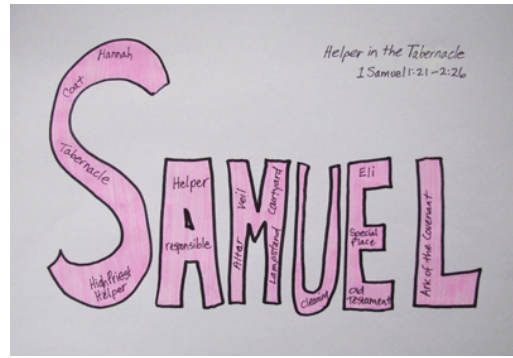 Helper in the Tabernacle
1 Samuel 1:21-2:26
SAMUEL
Hannah
Coat
Tabernacle
High Priest
Helper
Helper
responsible
Alter
Veil
Lampstand
Courtyard
Cleaning
Eli
Special
Place
Old
Testament
Ark of the Covenant